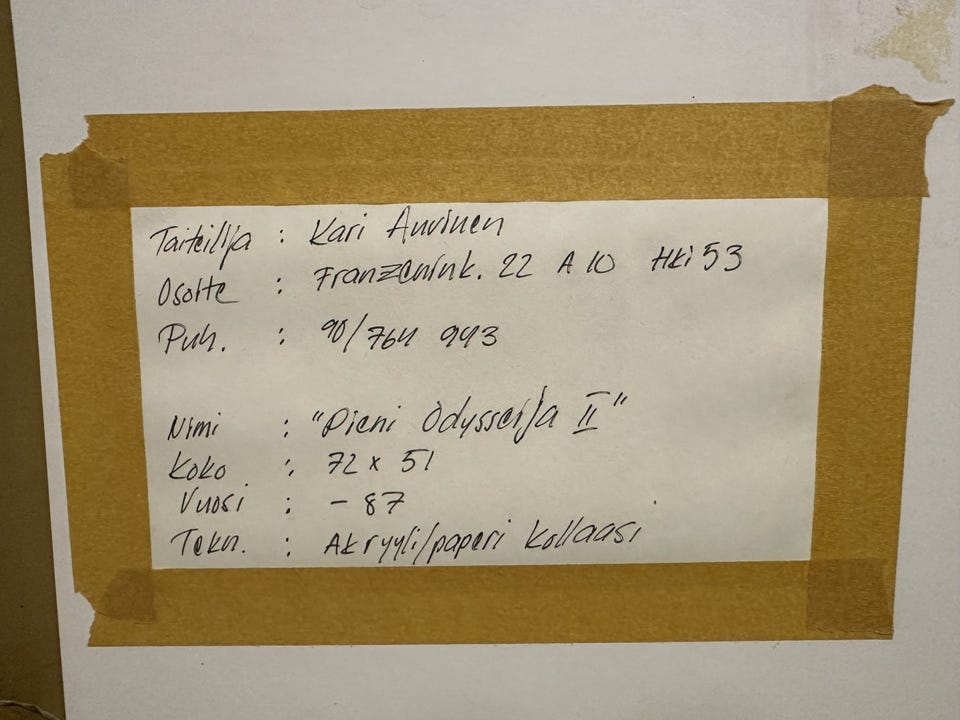 Taiteilija : Kari Auvinen
Osoite : Franzenink. 22 A 10 Hki 53
Puh. : 90/764 943
Nimi : "Pieni Odysseija II"
Koko : 72 x 51
Vuosi : - 87
Tekn. : Akryyli/paperi kollaasi